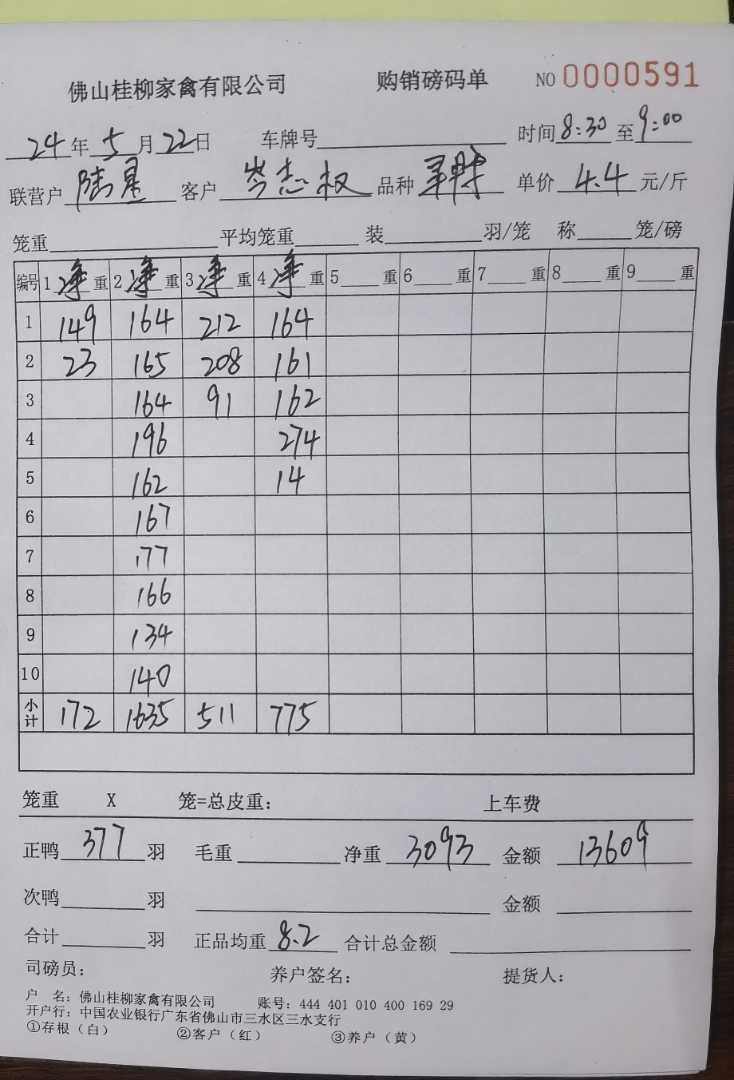 佛山桂柳家禽有限公司 购销磅码单 NO 0000591
24年5月22日 车牌号 时间8:30至9:00
联营户 陆星 客户 岑志权 品种 单价 4.4 元/斤
笼重 平均笼重 装 羽/笼 称 笼/磅
编号 1净重 2净重 3净重 4净重 5重 6重 7重 8重 9重
1 149 164 212 164
2 23 165 208 161
3 164 91 162
4 196 274
5 162 14
6 167
7 177
8 166
9 134
10 140
小计 172 1635 511 775
笼重 X 笼=总皮重: 上车费
正鸭 377 羽 毛重 净重 3093 金额 13609
次鸭 羽 金额
合计 羽 正品均重 8.2 合计总金额
司磅员: 养户签名: 提货人:
户 名: 佛山桂柳家禽有限公司 账号: 444 401 010 400 169 29
开户行: 中国农业银行广东省佛山市三水区三水支行
①存根(白) ②客户(红) ③养户(黄)